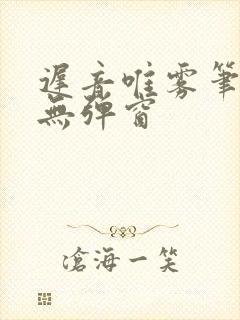 遲音唯雾筆
無弹窗
滄海一笑